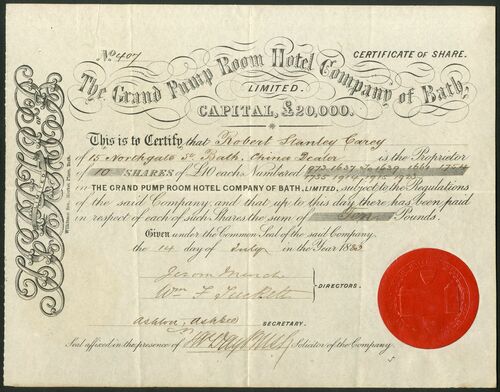 No 407
CERTIFICATE OF SHARE.
The Grand Pump Room Hotel Company of Bath,
LIMITED.
CAPITAL, £20,000.
This is to Certify that Robert Stanley Carey
of 15 Northgate St Bath, China Dealer is the Proprietor
of 10 SHARES of £10 each, Numbered
in THE GRAND PUMP ROOM HOTEL COMPANY OF BATH, LIMITED, subject to the Regulations
of the said Company and that up to this day there has been paid
in respect of each of such Shares, the sum of Ten Pounds.
Given under the Common Seal of the said Company,
the 14 day of July in the Year 18
Jerom Murch
Wm T
DIRECTORS.
SECRETARY.
Seal affixed in the presence of Solicitor of the Company.